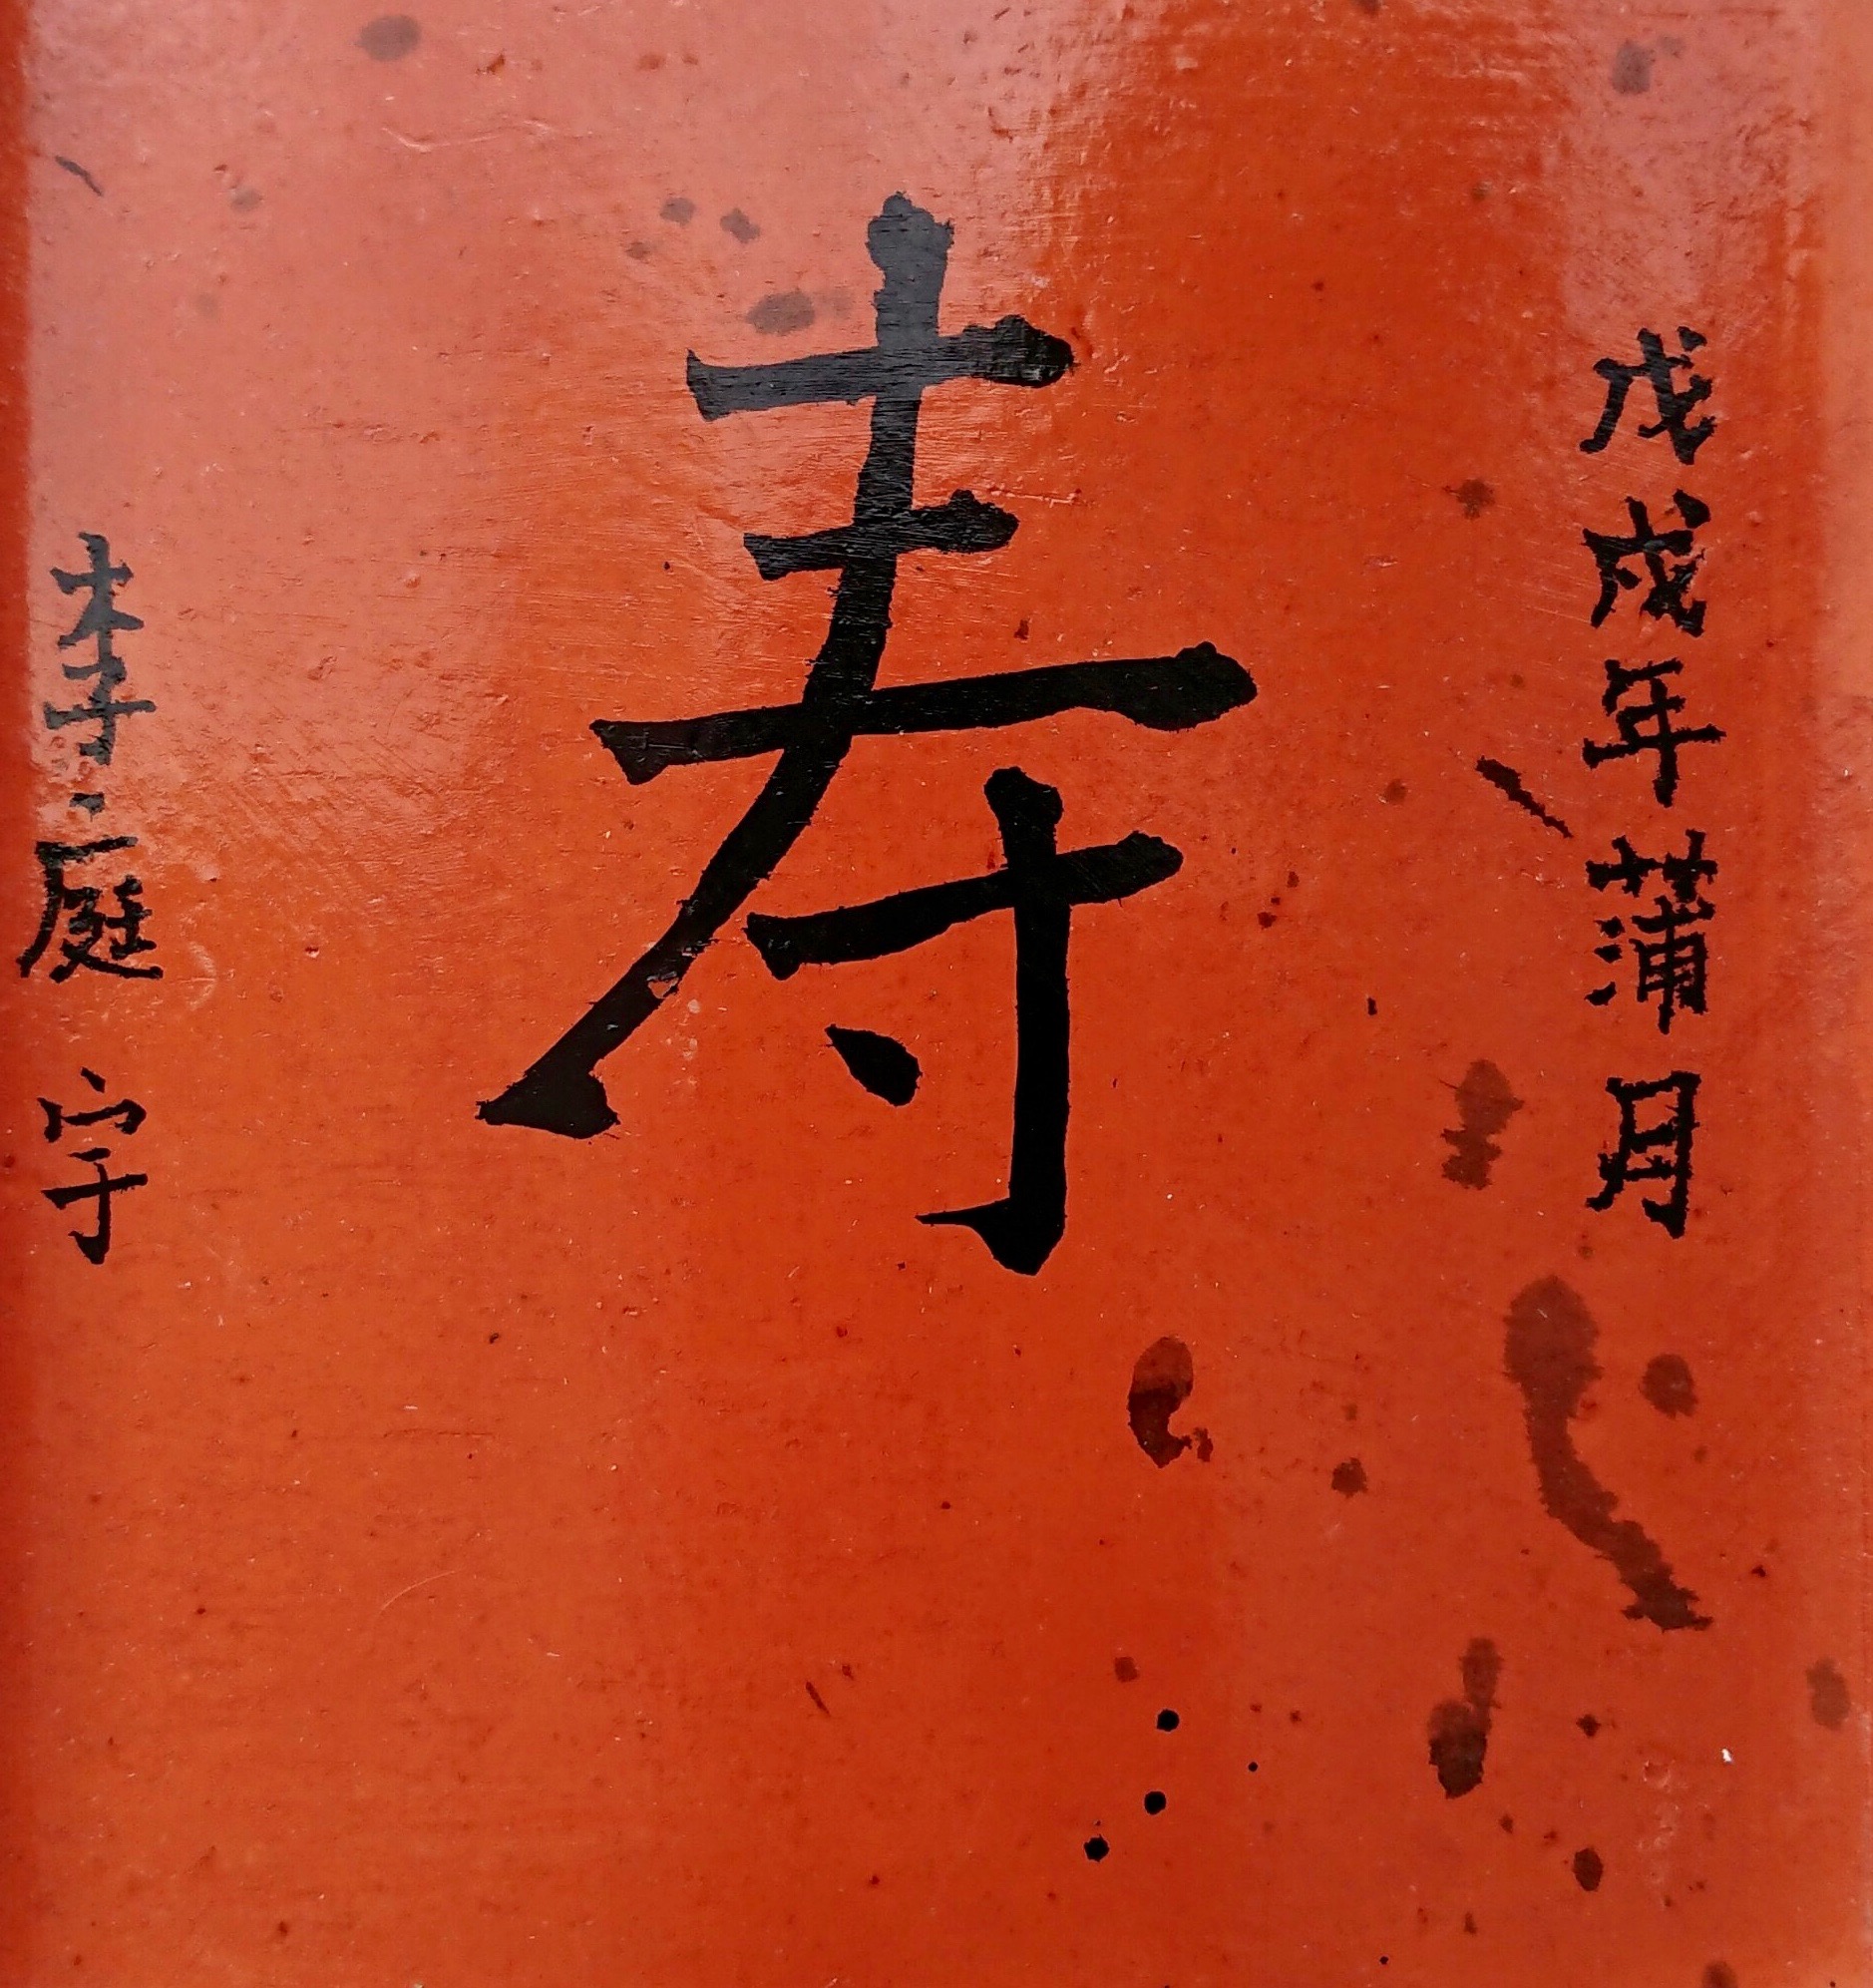 戊戌年蒲月
寿
李庭字